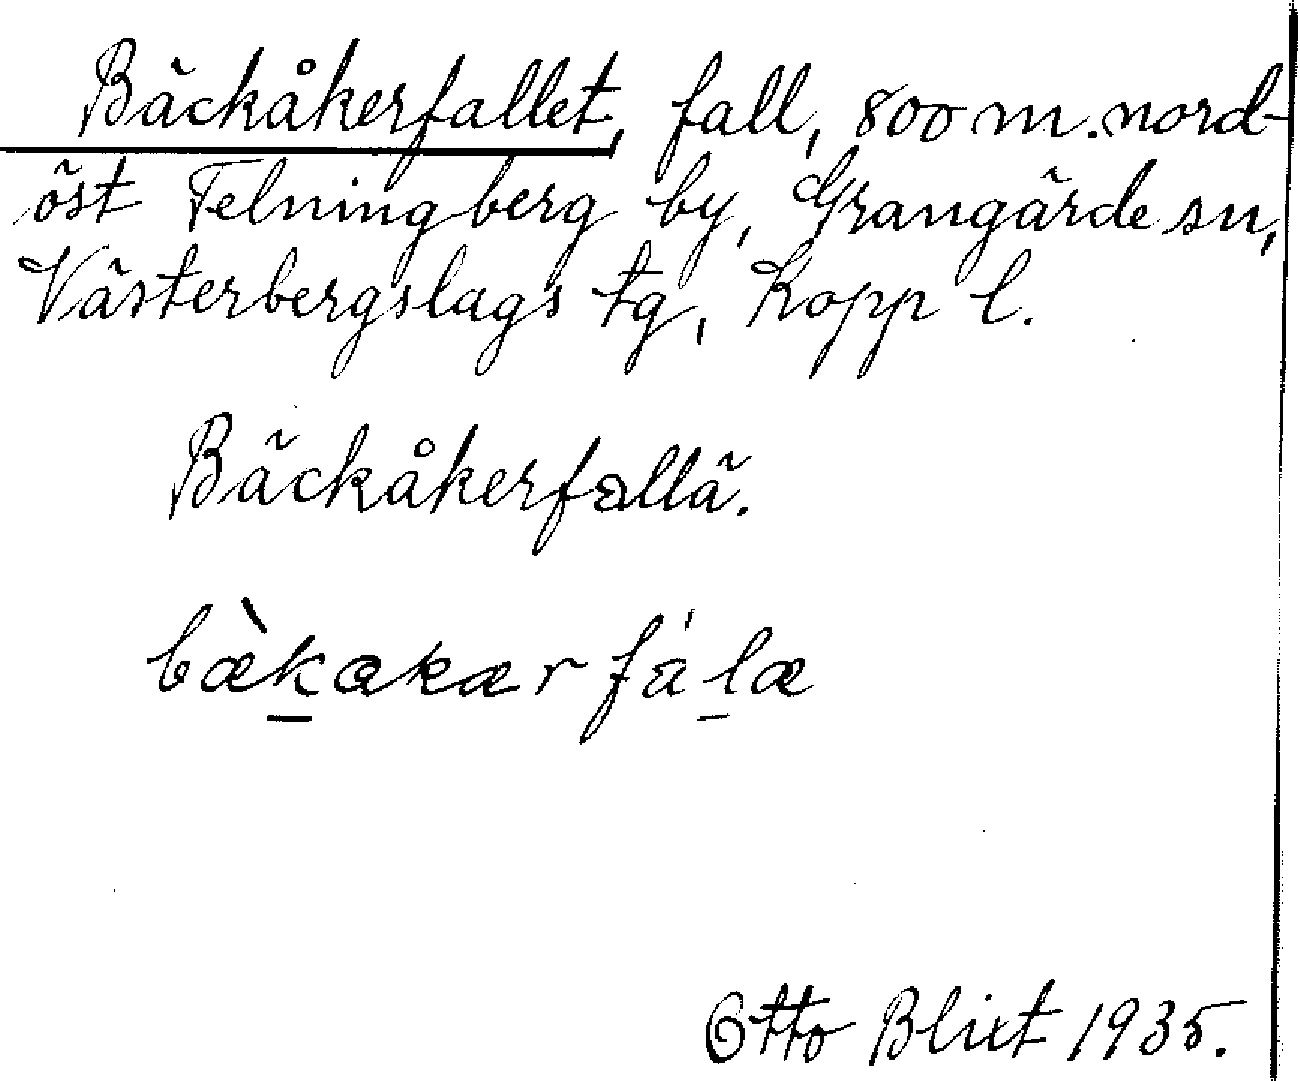 Bäckåkerfallet, fall, 800 m. nord-
öst Felningberg by, Grangärde sn,
Västerbergslags tg, Kopp l.
Bäckåkerfallä.
bæ̀kakær fálæ
Otto Blixt 1935.